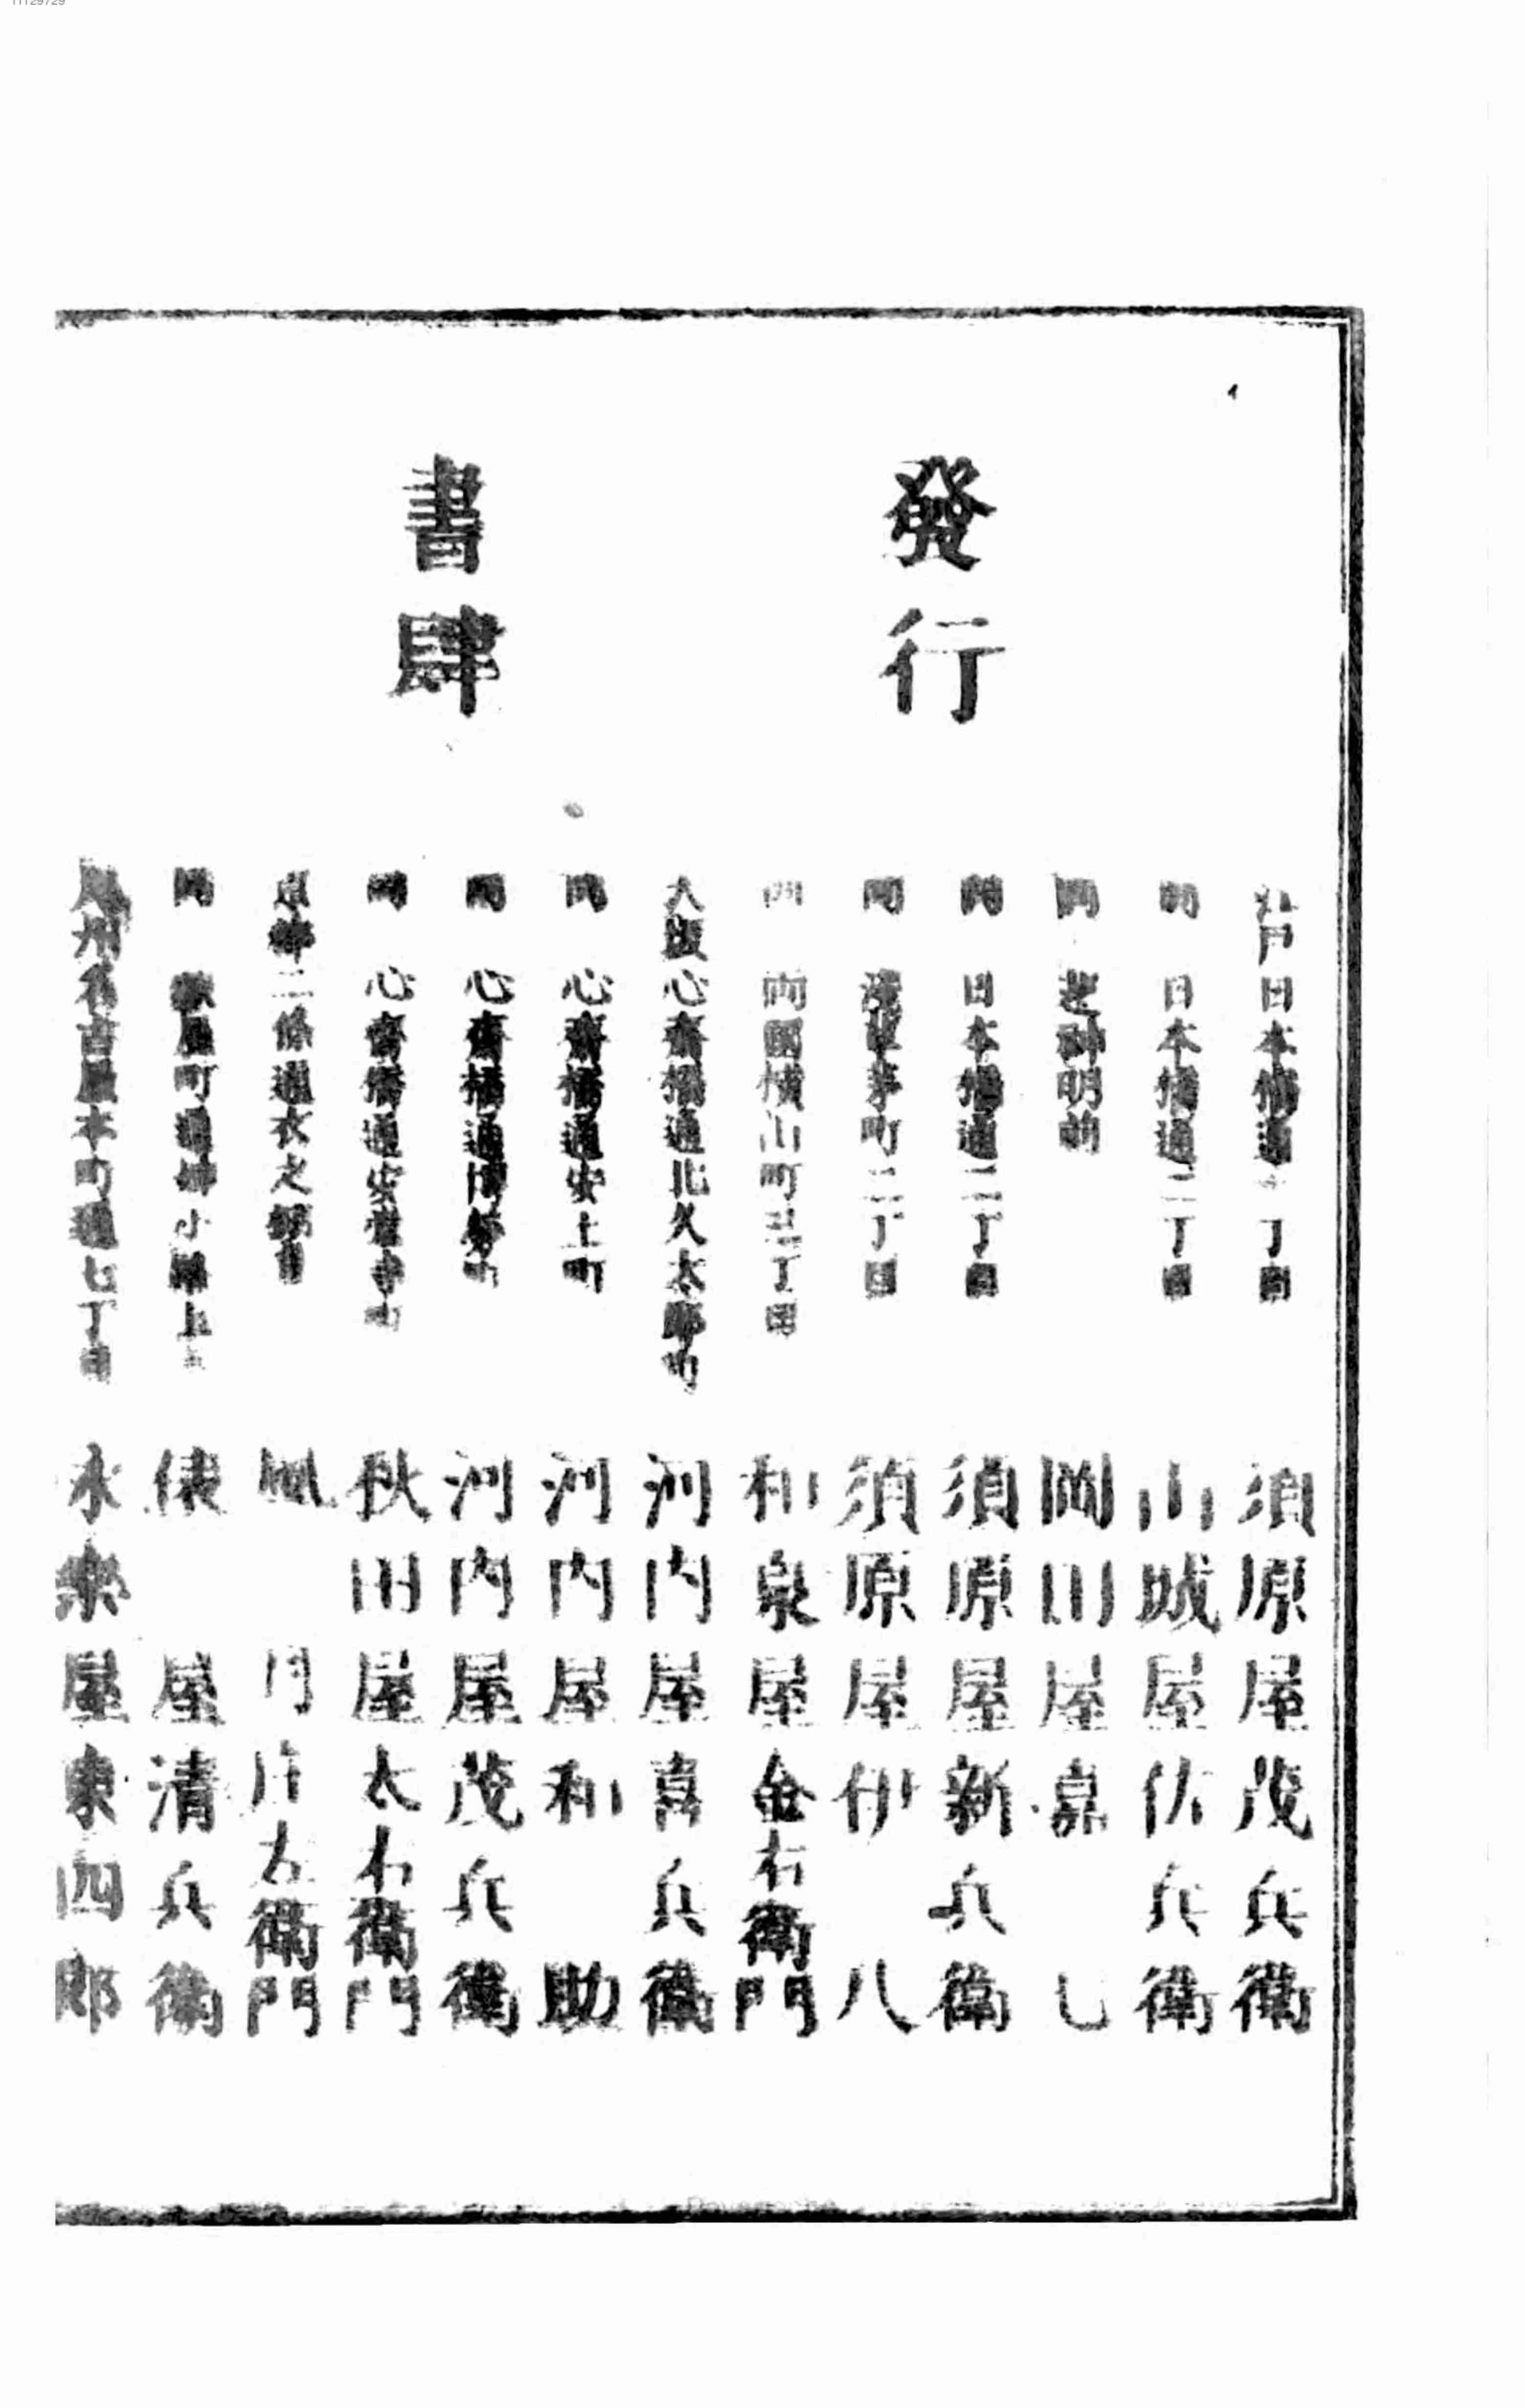 發行
書肆
江戸日本橋通 丁目 須原屋茂兵衛
同 日本橋通二丁目 山城屋佐兵衛
同 芝神明前 岡田屋嘉七
同 日本橋通二丁目 須原屋新兵衛
同 淺草茅町二丁目 須原屋伊八
同 両國横山町三丁目 和泉屋金右衛門
大阪心齋橋通北久太郎町 河内屋喜兵衛
同 心齋橋通安土町 河内屋和助
同 心齋橋通博勞町 河内屋茂兵衛
同 心齋橋通安堂寺町 秋田屋太右衛門
京都二條通衣之棚 風月 左衛門
同 町通 小路上 俵屋清兵衛
尾州名古屋本町通七丁目 永樂屋東四郎